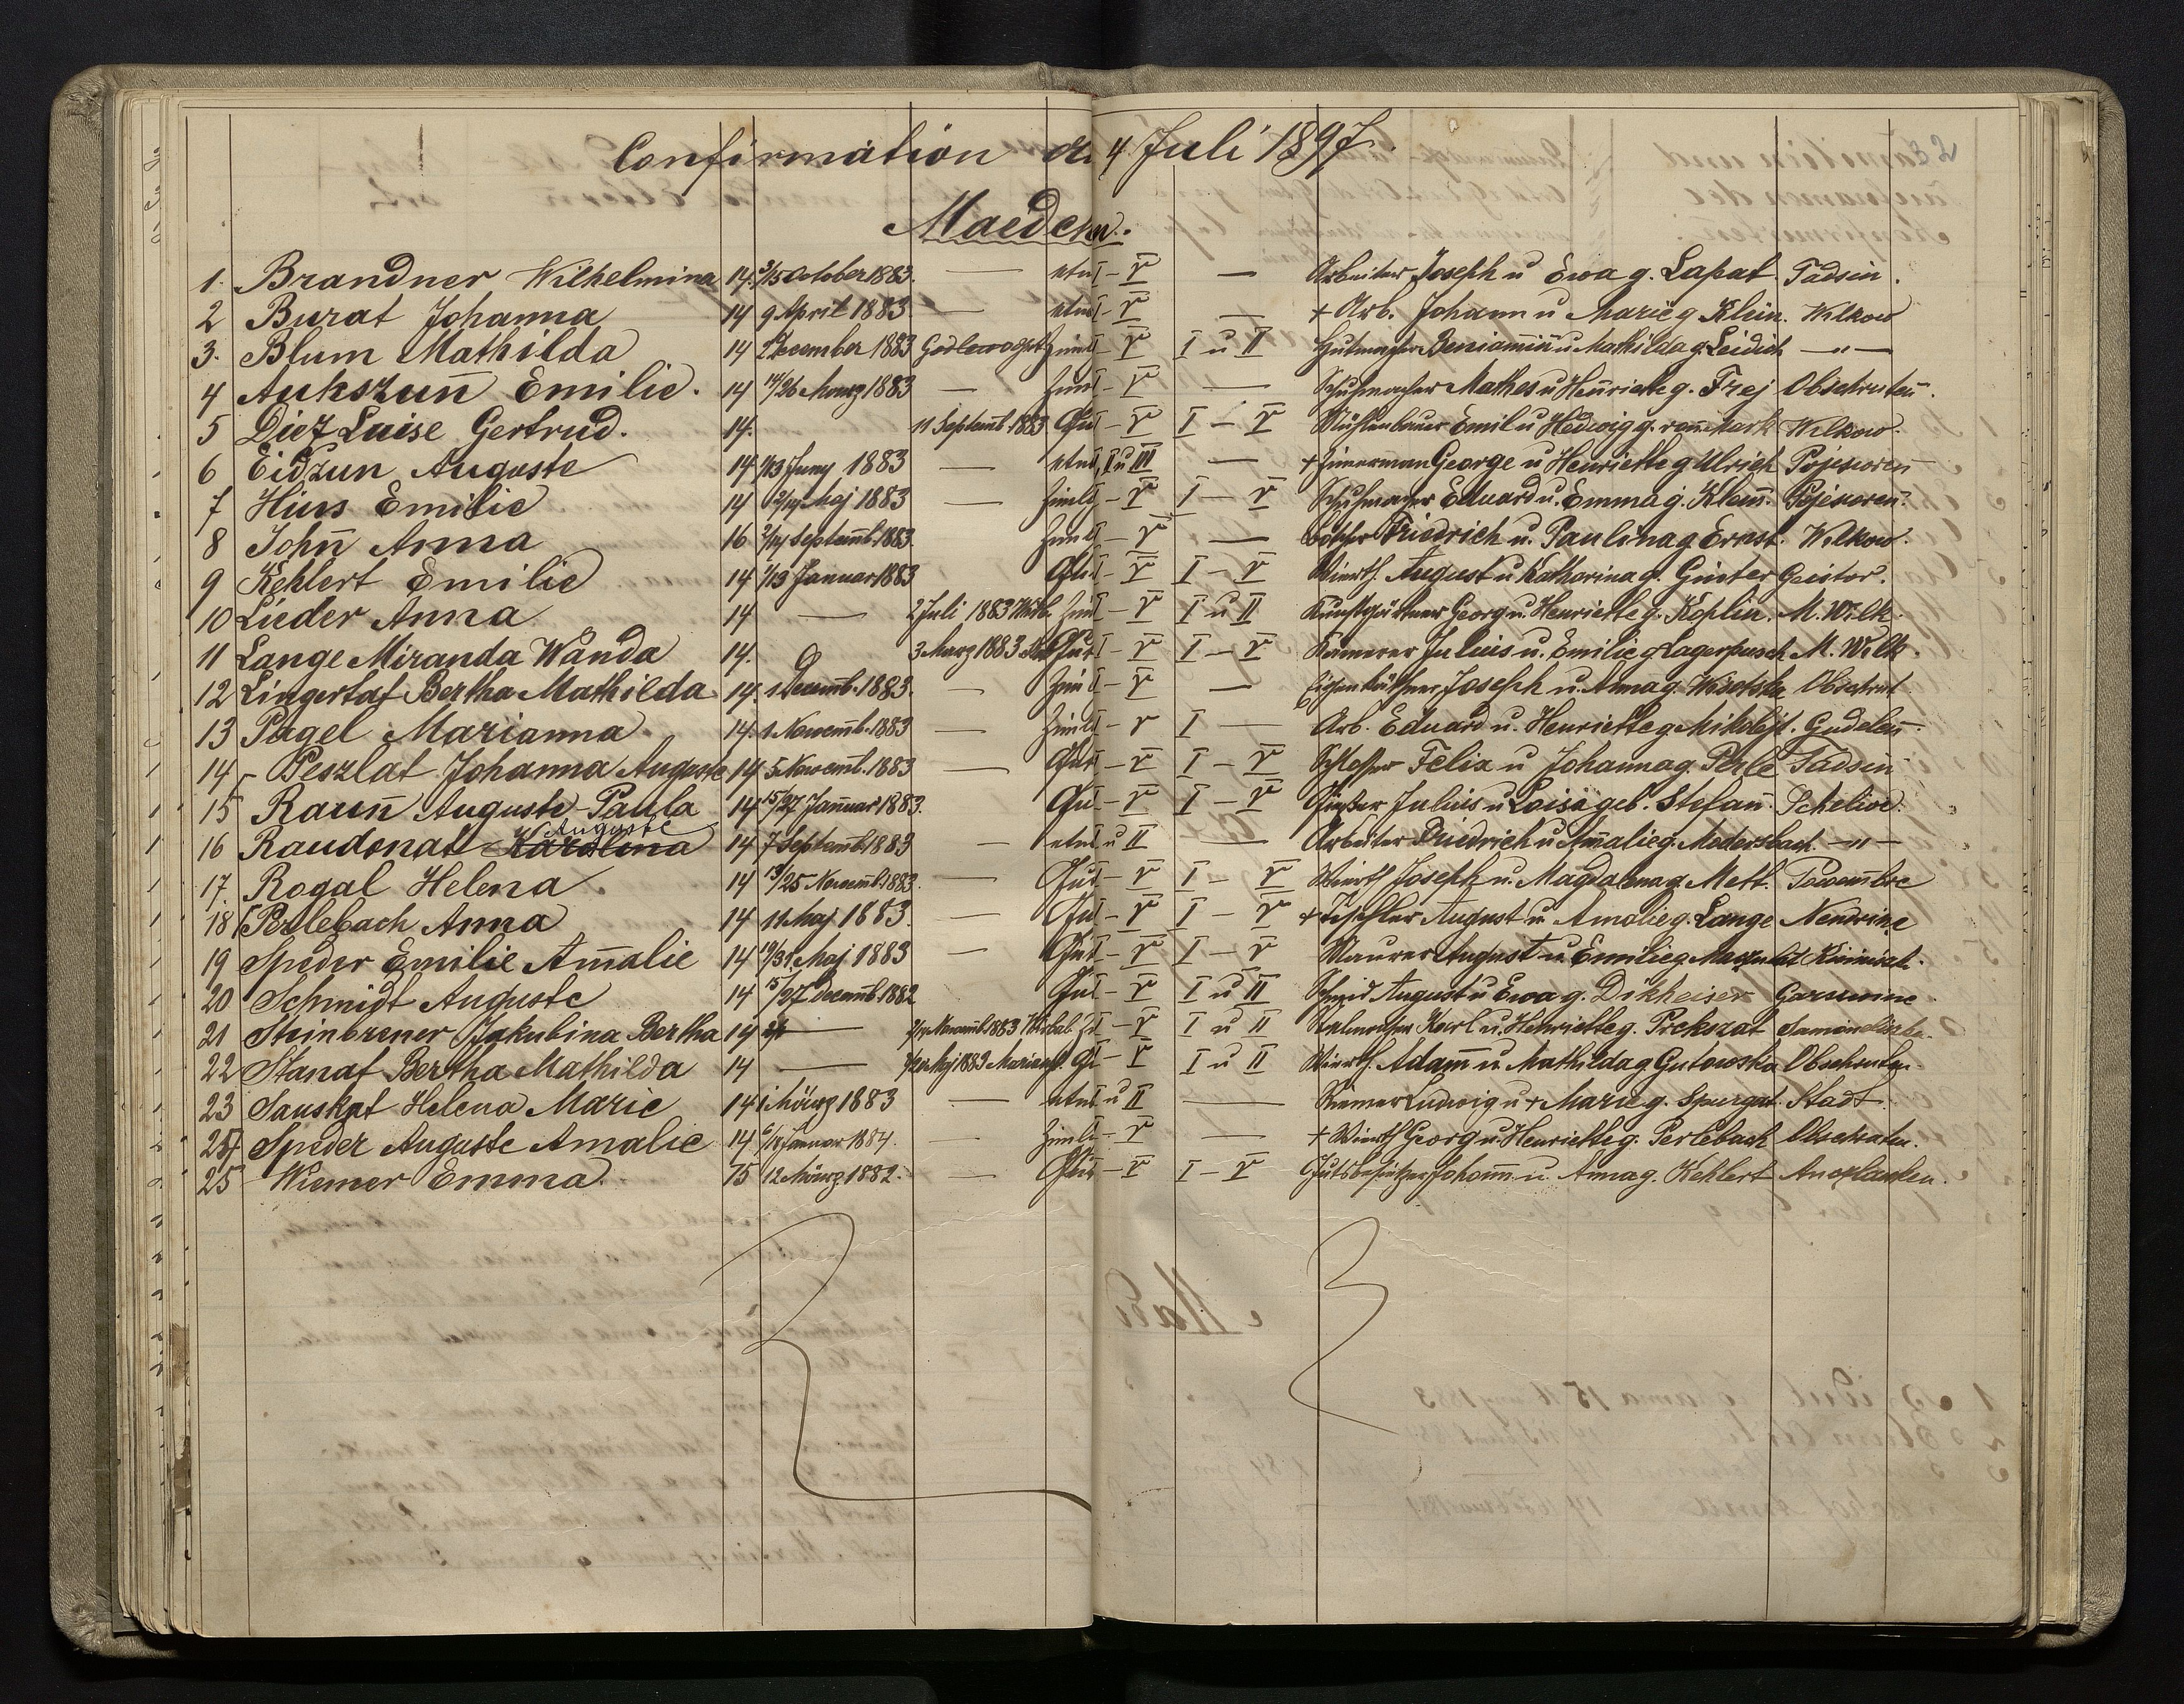 Confirmation d. 4 Juli 1897.
Maedchen.
1. Brandner Wilhelmina 14. 3/15 October 1883. — etw I – V — Arbeiter Joseph u Ewa g. Lapat. Tadsin.
2 Burat Johanna 14 9 April 1883 — etw I – V — + Arb. Johann u Marie g Klein. Wilkow
3. Blum Mathilda 14 December 1883 I – V I u II Hutmacher Beniamin u Mathilda g Leidich — " —
4 Aukszun̄ Emilie. 14 14/26 Maerz 1883 — I – V — Schuhmacher Mathes u Hen̄riette g. Frej Obschruten̄.
5 Diez Luise Gertrud. 14. 11 Septemb. 1883 Gut I – V I – V Mühlenbauer Emil u Hedwig g. Wilkow.
6 Eidzun Auguste 14 1/13 Juny 1883 — etw I, II u III — + Zimerman George u Henriette g Ulrich Pojeworen̄
7 Hins Emilie 14 2/14 Maj 1883 — I – V I – V Schuhmacher Eduard u. Emma g. Klem̄. Pojeworen̄.
8 John̄ Anna 16 2/14 Septemb. 1883. I – V — Friedrich u. Paulina g Ernst. Wilkow.
9 Kehlert Emilie 14 1/13 Januar 1883 Gut I – V I – V Wirth. August u Katharina g. Ginter Geistor.
10 Lieder Anna 14 — 2 Juli 1883 Wilk. I – V I u II Kunstgärtner Georg u. Henriette g. Koplin. M. Wilk.
11 Lange Miranda Wanda 14. 3 Marz 1883 Gut I – V I – V Kämerer Julius u. Emilie g Lagerpusch M. Wilk.
12 Lingertat Bertha Mathilda 14. 1 Decemb. 1883. — I – V — Joseph u. Anna g. Wisotska Obschrut
13 Pagel Marianna. 14. 1 Novemb. 1883 — I – V I — Arb. Eduard u. Henriette g Mikolejt. Gudelen̄.
14 Peszlat Johanna Auguste 14 5 Novemb. 1883 — Gut I – V I – V Schlosser Felix u Johanna g. Perle Tadsin
15 Raun̄ Auguste Paula 14 15/27 Januar 1883. Gut I – V I – V Julius u Loisa geb. Stefan̄.
16 Raudonat Karolina Auguste 14 7 Septemb 1883 — etw I u II — Arbeiter Friedrich u Am̄alie g. Modersbach. — " —
17. Rogal Helena. 14 13/25 Novemb. 1883. — Gut I – V I – V Wirth Joseph u. Magdalena g. Mett.
18 Perlebach Anna 14 11 Maj 1883. — Gut I – V I – V + Tischler August u. Amalie g. Lange Nendrine
19 Speder Emilie Am̄alie 14 19/31 Maj 1883 — Gut I – V I – V Maurer August u. Emilie g
20 Schmidt Auguste 14 15/27 Decemb 1882 Gut I – V I u II Schmid August u Ewa g. Dikheiser Garswine
21 Steinbrener Jakubina Bertha 14 — Novemb. 1883 Wirbal. I – V I u II Karl u. Henriette g. Prekszat
22 Stanat Bertha Mathilda 14 — Maj 1883 Mariamp. Gut I – V I u II Wirth. Adam̄ u. Mathilda g Gutowska Obschruten.
23 Sauskat Helena Marie 14 1 März 1883 — etw I u II — Riemer Ludwig u + Marie g. Spurgat. Stadt.
24 Speder Auguste Amalie 14 6/18 Januar 1884. — I – V — + Wirth Georg u. Henriette g. Perlebach Obschruten.
25 Wiemer Emma. 15 12 März 1882. — Gut I – V I – V Gutsbesitzer Johan̄n. u. Anna g. Kehlert